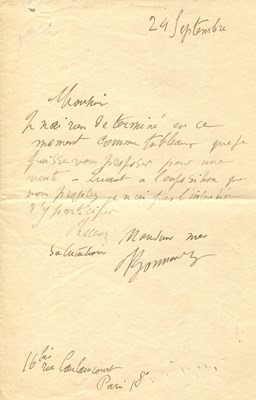 24 Septembre
Monsieur
Je n'ai rien de terminé en ce
moment comme tableaux que je
puisse vous proposer pour une
vente - quant à l'exposition que
vous projetez je n'ai pas l'intention
d'y participer
Recevez Monsieur mes
salutations
PBonnard
16 bis
rue Caulaincourt
Paris 18e